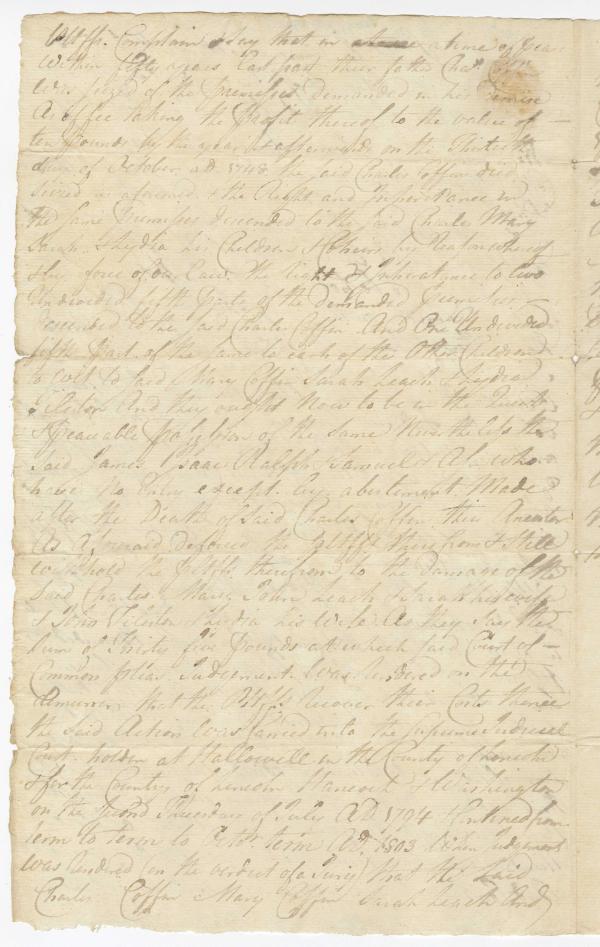 Pltffs. Complain & Say that in a time of Peace
Within fifty years Last past their father Chas. Coffin
Was Seized of the Premises Demanded in his Demesne
As of fee taking the Profit thereof to the value of
ten pounds by the year & afterwards on the Thirtieth
day of October AD 1748 the said Charles Coffin died
Seized as aforesaid & the Right and Inheritance in
the Same Premises descended to the said Charles Mary
Sarah & Lydia his Children & heirs by Reason whereof
& by force of our Law the Right & Inheritance to two
Undivided fifth parts of the demanded Premises
descended to the said Charles Coffin And One Undivided
fifth Part of the Same to each of the Other Children
to Wit to said Mary Coffin Sarah Leach & Lydia
Tileston And they ought Now to be in the Quiet
& Peaceable possession of the Same Nevertheless the
Said James Isaac Ralph Samuel & Asa who
have No Entry except by abatement Made
after the Death of Said Charles Coffin their Ancestor
As aforesaid Deforced the Pltffs therefrom & Still
withhold the Pltffs therefrom to the Damage of the
Said Charles Mary John Leach & Sarah his wife
& John Tileston & Lydia his Wife As they Say the
Sum of Thirty five Pounds at which said Court of
Common pleas Judgement Was Rendered on the
demurrer that the Recover their Costs thence
the said Action was Carried into the Supreme Judicial
Court holden at Hallowell in the County of Lincoln
& for the Countys of Lincoln Hancock & Washington
on the Second Tuesday of July AD 1794 & Continued from
term to term to Octor. term AD 1803 When Judgement
was Rendered (on the verdict of a Jury) that the Said
Charles Coffin Mary Coffin Sarah Leach And